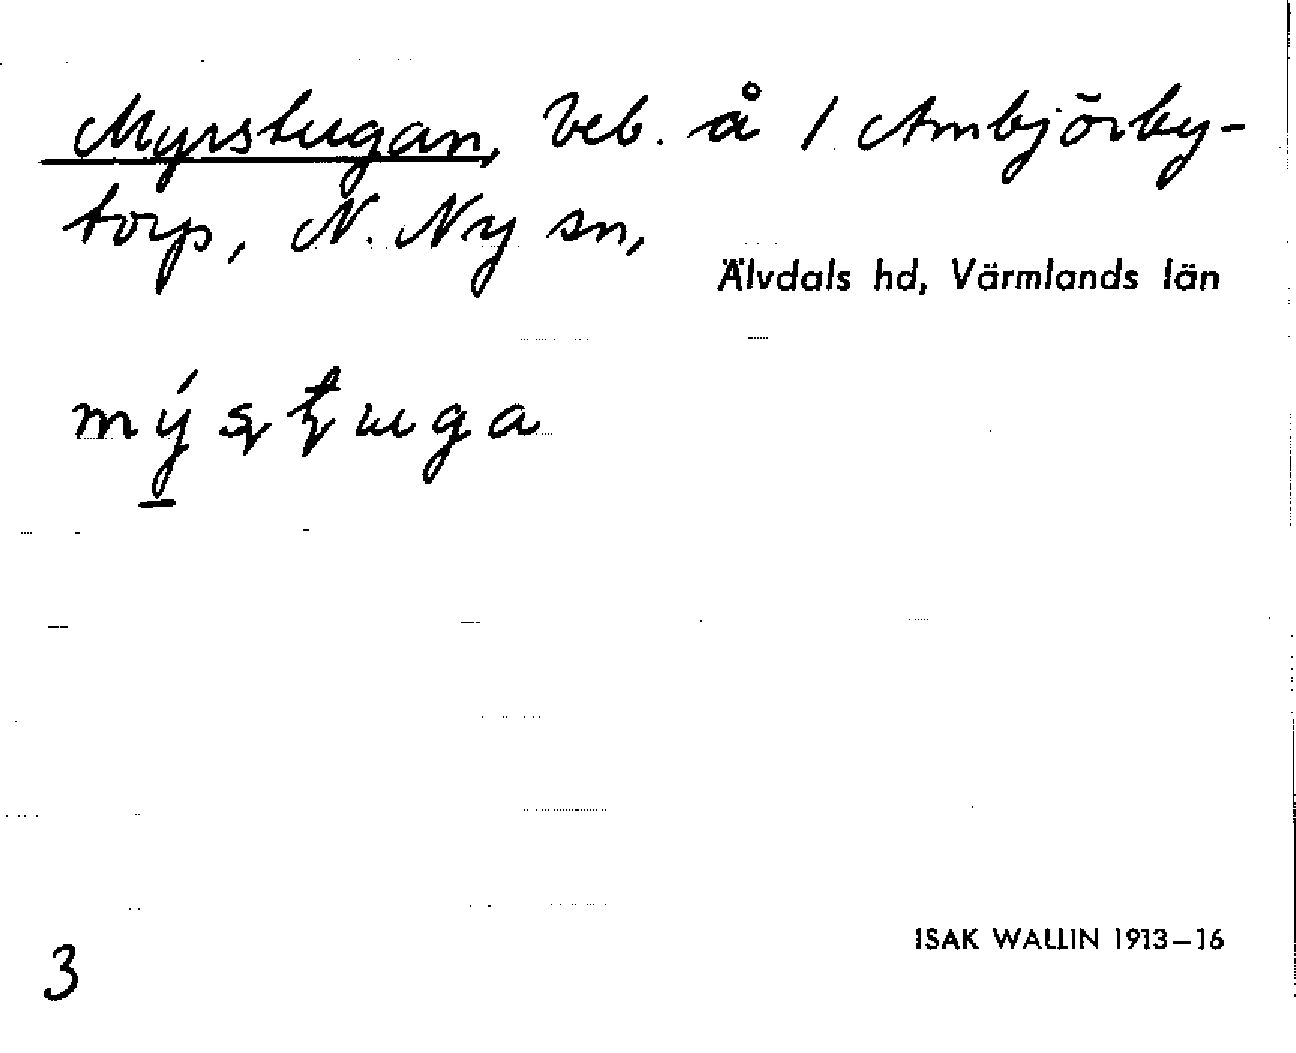 Myrstugan, beb. å 1 Ambjörby-
torp, N. Ny sn,
Älvdals hd, Värmlands län
mý̠ʂʈuga
3
ISAK WALLIN 1913–16